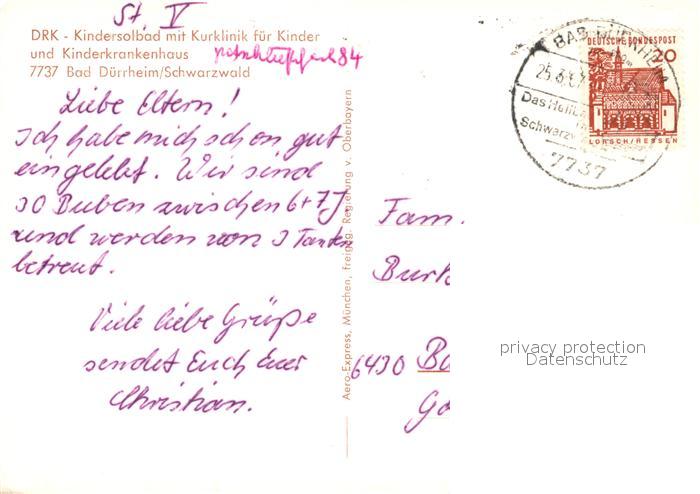 St. V
DRK - Kindersolbad mit Kurklinik für Kinder
und Kinderkrankenhaus
7737 Bad Dürrheim/Schwarzwald
84
Liebe Eltern!
Ich habe mich schon gut
eingelebt. Wir sind
30 Buben zwischen 6+7J
und werden von 3 Tanten
betreut.
Viele liebe Grüße
sendet Euch Euer
Christian.
Aero-Express, München, freigeg. Regierung v. Oberbayern
BAD DÜRRHEIM
Das Heilkl
Schwarzw
7737
DEUTSCHE BUNDESPOST
20
LORSCH/HESSEN
Fam.
Burk
6430 Ba
privacy protection
Datenschutz